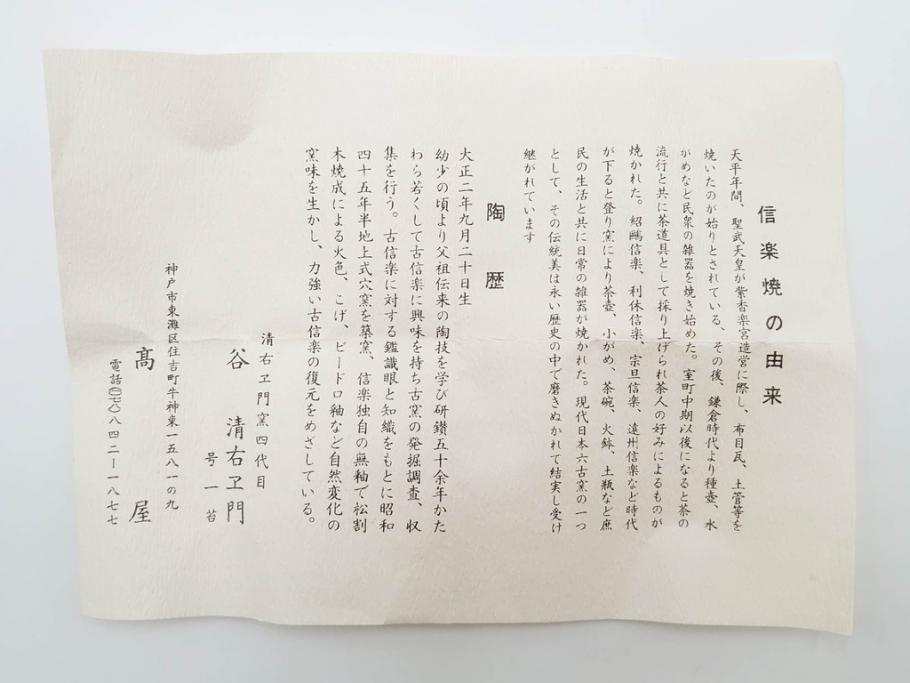 信楽焼の由来
天平年間、聖武天皇が紫香楽宮造営に際し、布目瓦、土管等を
焼いたのが始りとされている、その後、鎌倉時代より種壺、水
がめなど民衆の雑器を焼き始めた。室町中期以後になると茶の
流行と共に茶道具として採り上げられ茶人の好みによるものが
焼かれた。紹鴎信楽、利休信楽、宗旦信楽、遠州信楽など時代
が下ると登り窯により茶壺、小がめ、茶碗、火鉢、土瓶など庶
民の生活と共に日常の雑器が焼かれた。現代日本六古窯の一つ
として、その伝統美は永い歴史の中で磨きぬかれて結実し受け
継がれています
陶歴
大正二年九月二十日生
幼少の頃より父祖伝来の陶技を学び研鑚五十余年かた
わら若くして古信楽に興味を持ち古窯の発掘調査、収
集を行う。古信楽に対する鑑識眼と知識をもとに昭和
四十五年半地上式穴窯を築窯、信楽独自の無釉で松割
木焼成による火色、こげ、ビードロ釉など自然変化の
窯味を生かし、力強い古信楽の復元をめざしている。
清右ヱ門窯四代目
谷 清右ヱ門
号一苔
神戸市東灘区住吉町牛神東一五八一の九
髙屋
電話(〇七八)八四二ー一八七七